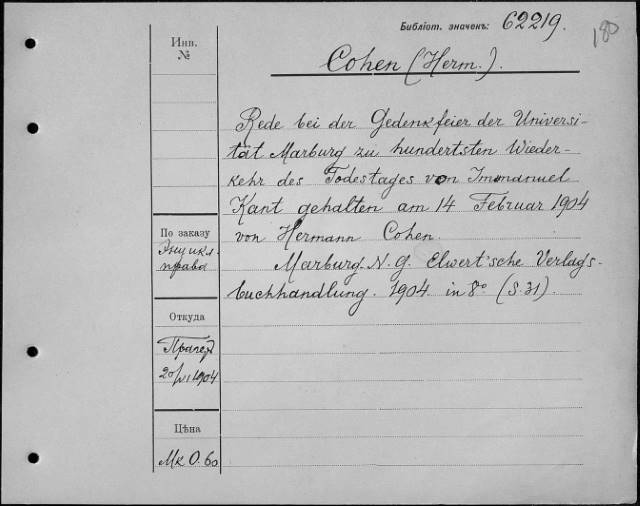 Библіот. значекъ: 62219.
180
Инв.
№
Cohen (Herm.).
Rede bei der Gedenkfeier der Universi-
tät Marburg zu hundertsten Wieder-
kehr des Todestages von Immanuel
Kant gehalten am 14 Februar 1904
von Hermann Cohen.
Marburg. N. G. Elwert'sche Verlags-
buchhandlung. 1904 in 8º (S. 31).
По заказу
Энцикл.
права
Откуда
20/VI 1904
Цѣна
Mk 0.60